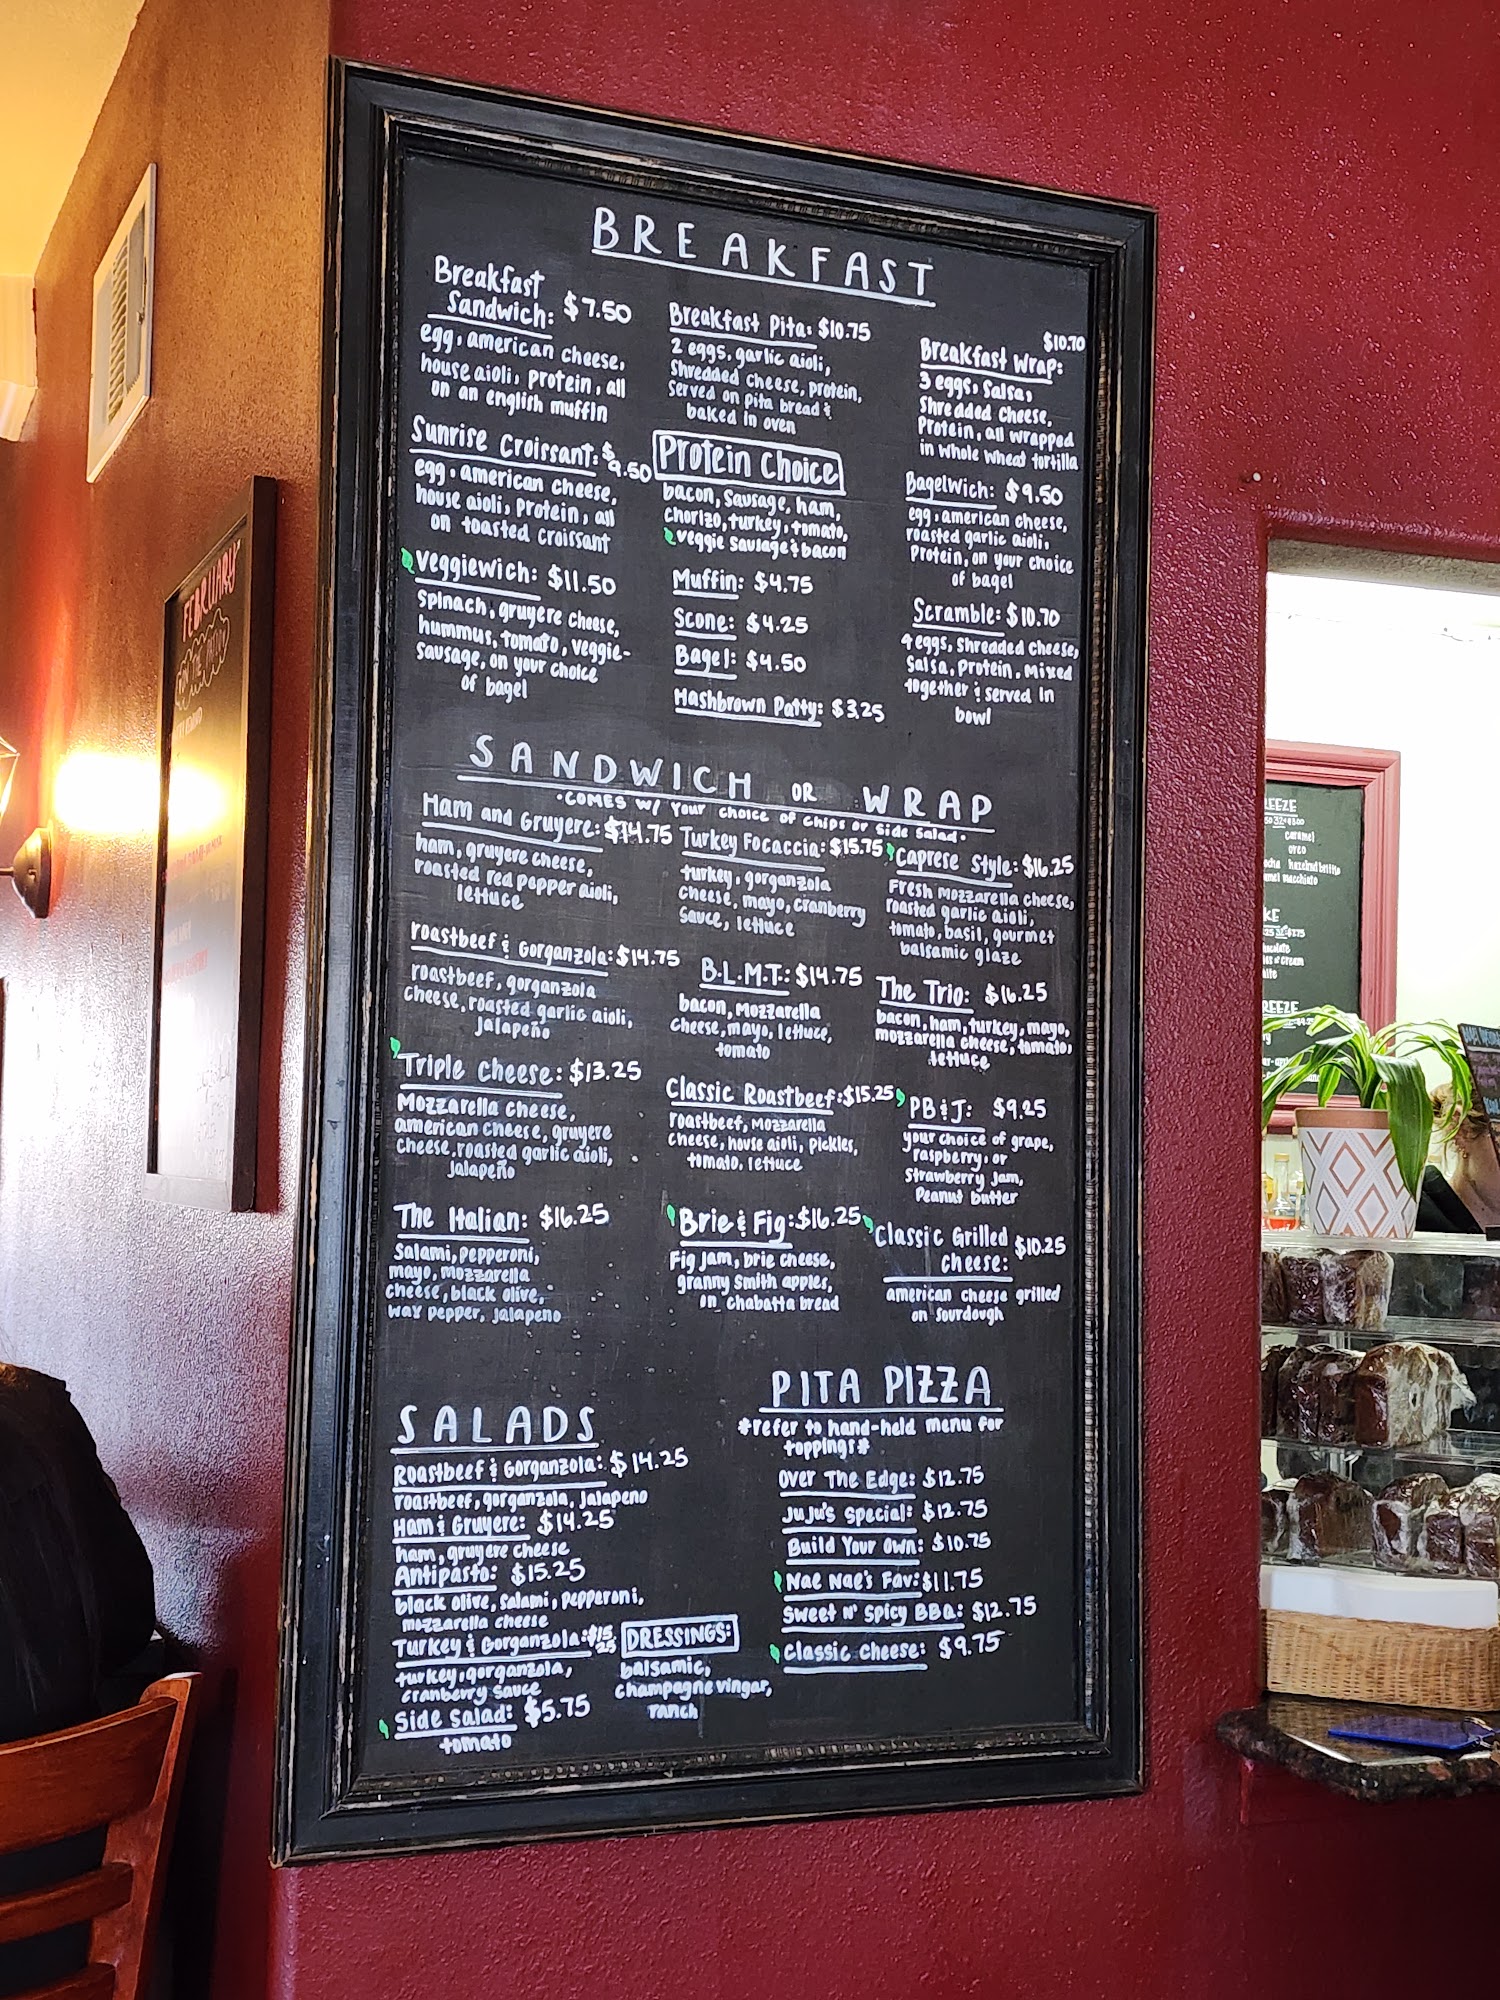 BREAKFAST
Breakfast
Sandwich: $7.50
egg, american cheese,
house aioli, protein, all
on an english muffin
Sunrise Croissant: $9.50
egg, american cheese,
house aioli, protein, all
on toasted croissant
Veggiewich: $11.50
spinach, gruyere cheese,
hummus, tomato, veggie-
sausage, on your choice
of bagel
Breakfast Pita: $10.75
2 eggs, garlic aioli,
Shredded cheese, protein,
Served on pita bread &
baked in oven
Protein Choice
bacon, sausage, ham,
chorizo, turkey, tomato,
veggie sausage & bacon
Muffin: $4.75
Scone: $4.25
Bagel: $4.50
Hashbrown Patty: $3.25
$10.70
Breakfast Wrap:
3 eggs, salsa,
Shredded cheese,
Protein, all wrapped
in whole wheat tortilla
Bagelwich: $9.50
egg, american cheese,
roasted garlic aioli,
Protein, on your choice
of bagel
Scramble: $10.70
4 eggs, shredded cheese,
Salsa, protein, mixed
together & served in
bowl
SANDWICH OR WRAP
•COMES W/ Your choice of chips or side salad•
Ham and Gruyere: $14.75
ham, gruyere cheese,
roasted red pepper aioli,
lettuce
roastbeef & Gorganzola: $14.75
roastbeef, gorganzola
cheese, roasted garlic aioli,
jalapeño
Triple Cheese: $13.25
Mozzarella cheese,
american cheese, gruyere
cheese, roasted garlic aioli,
jalapeño
The Italian: $16.25
Salami, pepperoni,
mayo, mozzarella
cheese, black olive,
wax pepper, jalapeno
Turkey Focaccia: $15.75
turkey, gorganzola
cheese, mayo, cranberry
sauce, lettuce
B.L.M.T.: $14.75
bacon, mozzarella
cheese, mayo, lettuce,
tomato
Classic Roastbeef: $15.25
roastbeef, mozzarella
cheese, house aioli, pickles,
tomato, lettuce
Brie & Fig: $16.25
Fig jam, brie cheese,
granny smith apples,
on chabatta bread
Caprese Style: $16.25
Fresh mozzarella cheese,
roasted garlic aioli,
tomato, basil, gourmet
balsamic glaze
The Trio: $16.25
bacon, ham, turkey, mayo,
mozzarella cheese, tomato,
lettuce
PB & J: $9.25
your choice of grape,
raspberry, or
Strawberry jam,
Peanut butter
Classic Grilled
cheese: $10.25
american cheese grilled
on sourdough
SALADS
Roastbeef & Gorganzola: $14.25
roastbeef, gorganzola, jalapeno
Ham & Gruyere: $14.25
ham, gruyere cheese
Antipasto: $15.25
black olive, salami, pepperoni,
mozzarella cheese
Turkey & Gorganzola: $15.25
turkey, gorganzola,
cranberry sauce
Side Salad: $5.75
tomato
DRESSINGS:
balsamic,
champagne vingar,
ranch
PITA PIZZA
*refer to hand-held menu for
toppings*
Over The Edge: $12.75
Juju's Special: $12.75
Build Your Own: $10.75
Nae Nae's Fav: $11.75
Sweet n' Spicy BBQ: $12.75
Classic Cheese: $9.75
FEBRUARY
caramel
oreo
hazelnut brittle